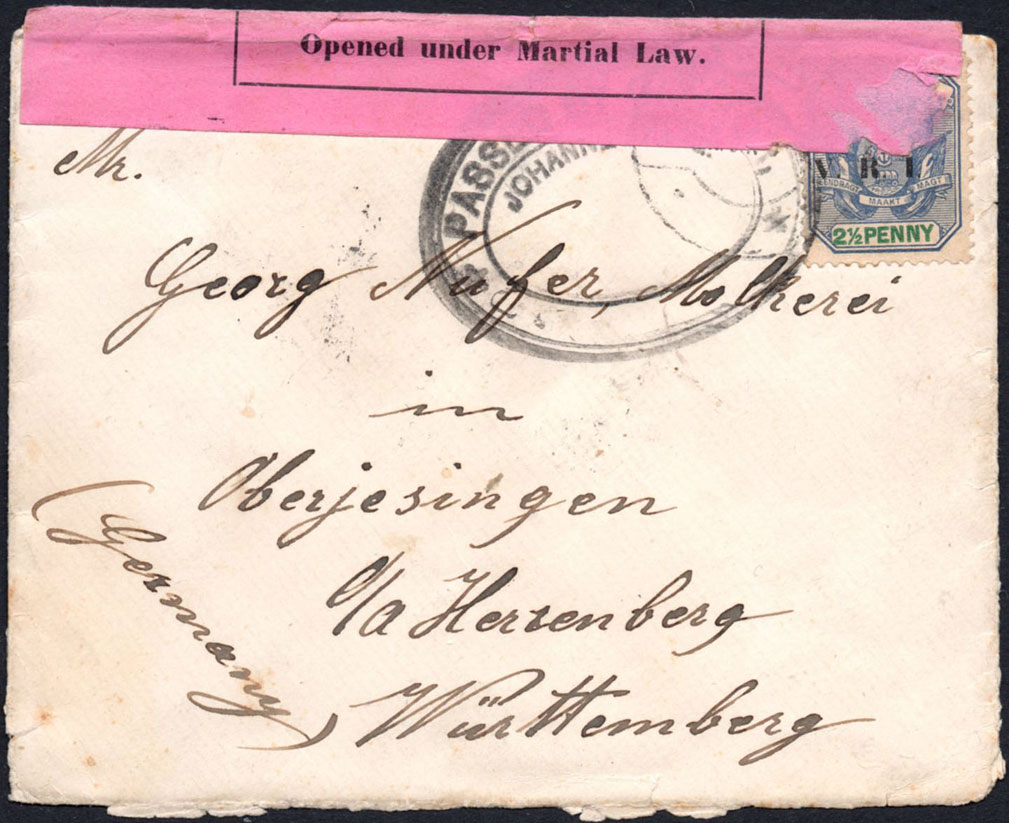 Opened under Martial Law.
Mr.
PASSE
JOHANNE
V. R. I
EENDRAGT MAAKT MAGT
2½ PENNY
Georg Nüfer, Molkerei
in
Oberjesingen
O/a Herrenberg
Württemberg
(Germany)